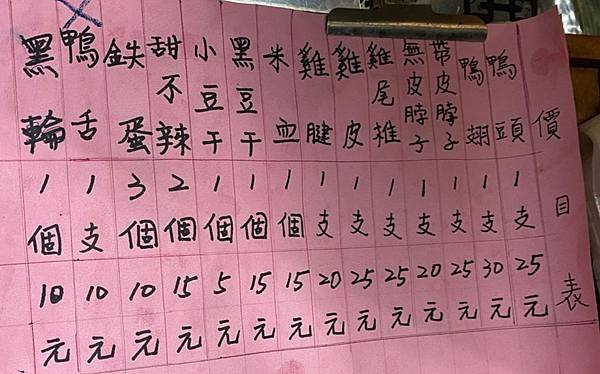 價目表
鴨頭1支25元
鴨翅1支30元
帶皮脖子1支25元
無皮脖子1支20元
雞尾推1支25元
雞皮1支25元
雞腱1支20元
米血1個15元
黑豆干1個15元
小豆干1個5元
甜不辣2個15元
鉄蛋3個10元
鴨舌1支10元
黑輪1個10元